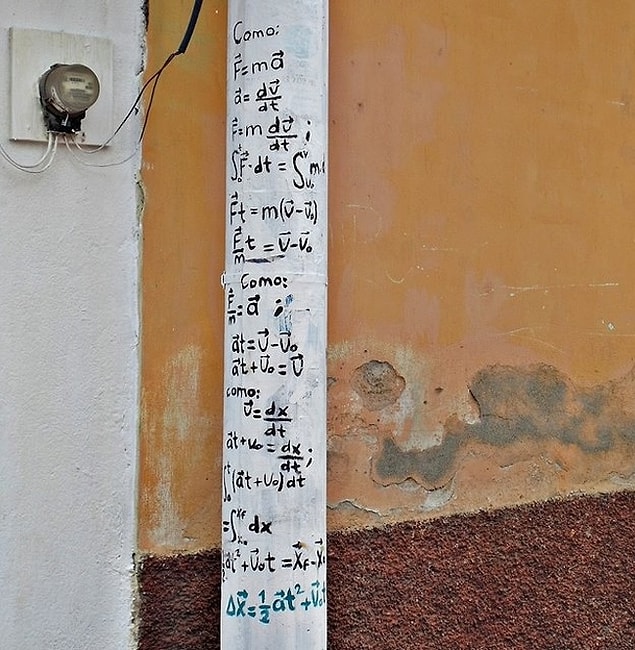 Como:
F⃗=ma⃗
a⃗=dv⃗/dt
F⃗=m dv⃗/dt ;
∫₀ᵗF⃗·dt=∫ᵥ₀ᵛm
F⃗t=m(v⃗-v⃗₀)
F⃗/m t=v⃗-v⃗₀
Como:
F⃗/m=a⃗ ;
a⃗t=v⃗-v⃗₀
a⃗t+v⃗₀=v⃗
como:
v⃗=dx/dt
a⃗t+v₀=dx/dt;
∫₀ᵗ(a⃗t+v₀)dt
=∫ₓ₀ˣᶠdx
½a⃗t²+v⃗₀t=x⃗f-x⃗₀
Δx⃗=½a⃗t²+v⃗₀t